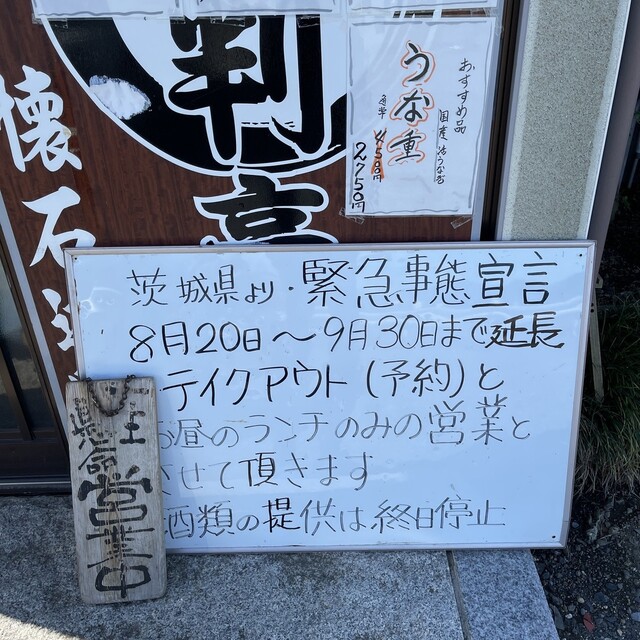 おすすめ品
国産
うな重
2750円
懐石
判亭
茨城県より・緊急事態宣言
8月20日〜9月30日まで延長
テイクアウト(予約)と
お昼のランチのみの営業と
させて頂きます
酒類の提供は終日停止
懸命
営業中